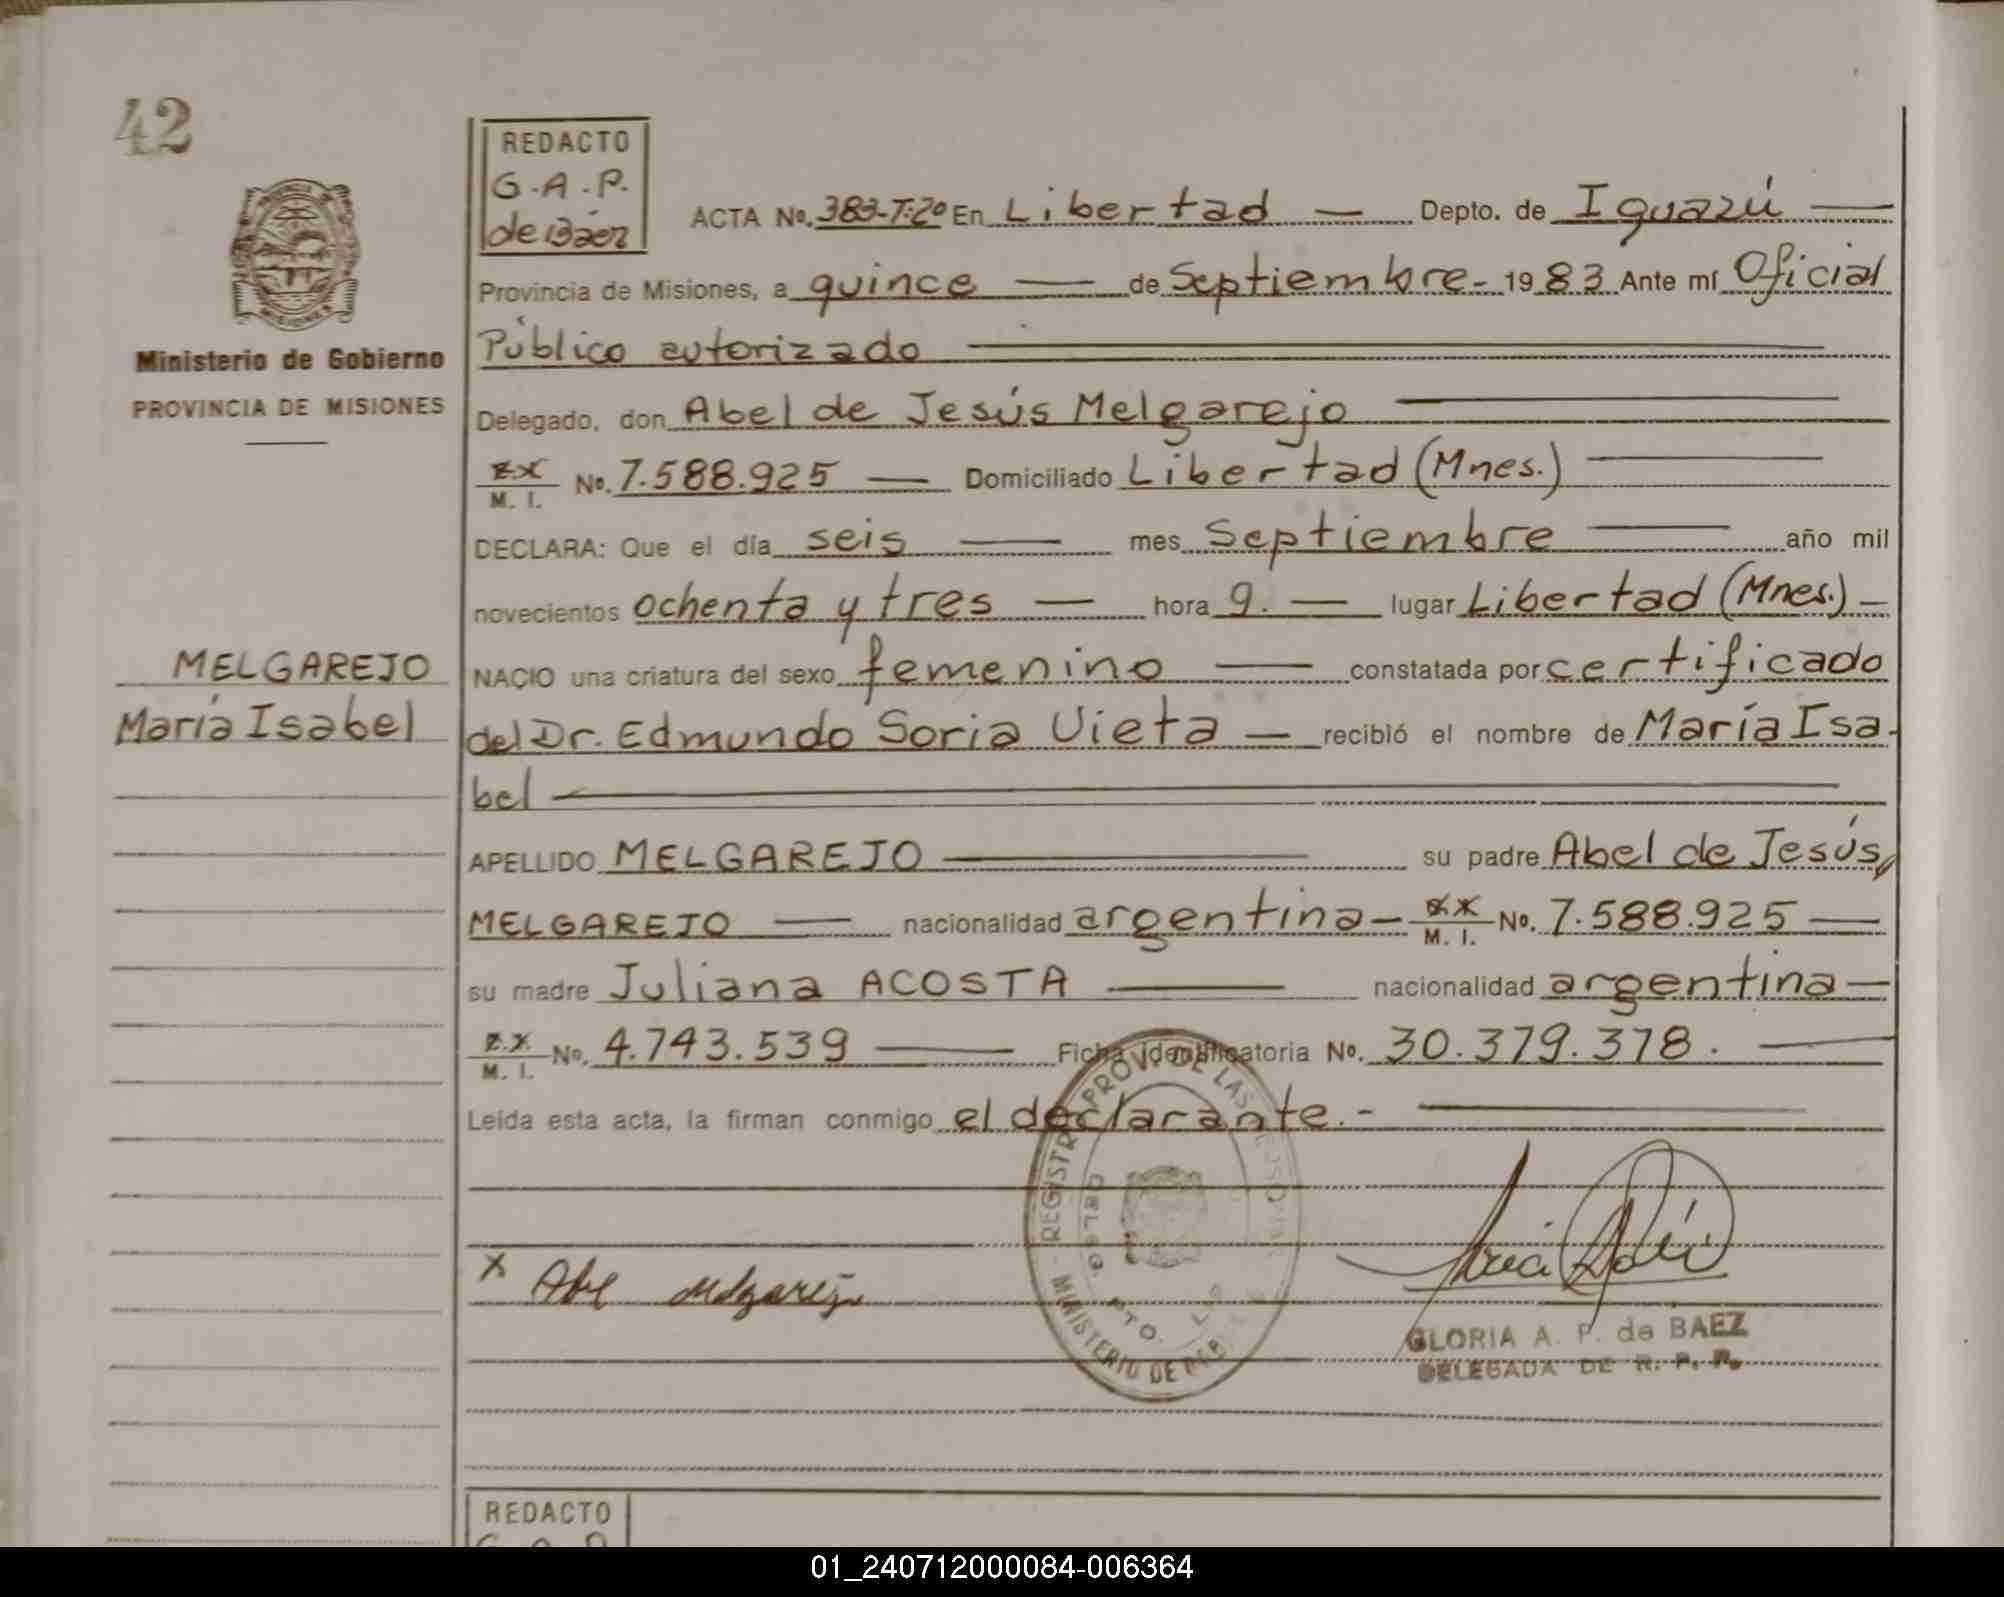 42
REDACTO
G.A.P.
de Báez
ACTA No. 383-T:2º En Libertad — Depto. de Iguazú —
Provincia de Misiones, a quince — de Septiembre - 1983 Ante mí Oficial
Público autorizado
Ministerio de Gobierno
PROVINCIA DE MISIONES
Delegado, don Abel de Jesús Melgarejo
M. I. No. 7.588.925 — Domiciliado Libertad (Mnes.)
DECLARA: Que el día seis — mes Septiembre — año mil
novecientos ochenta y tres — hora 9. — lugar Libertad (Mnes.) —
MELGAREJO
María Isabel
NACIO una criatura del sexo femenino — constatada por certificado
del Dr. Edmundo Soria Vieta — recibió el nombre de María Isa-
bel
APELLIDO MELGAREJO — su padre Abel de Jesús
MELGAREJO — nacionalidad argentina — M. I. No. 7.588.925 —
su madre Juliana ACOSTA — nacionalidad argentina —
M. I. No. 4.743.539 — Ficha identificatoria No. 30.379.378. —
Leída esta acta, la firman conmigo el declarante.-
REGISTR PROV. DE LAS PERSONAS
MINISTERIO DE GOB
X Abel Melgarejo
GLORIA A. P. de BAEZ
DELEGADA DE R. P. P.
REDACTO
G. A. P.
01_240712000084-006364